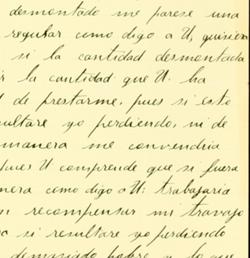 desmontado me parese una
regular como digo a U, quisiera
si la cantidad desmontada
ir la cantidad que U. ha
d de prestarme, pues si esto
sultare yo perdiendo, ni de
manera me convendria
pues U comprende que si fuera
nera como digo a U: trabajaria
n recompensar mi travajo
o si resultare yo perdiendo
demasiado pobre y lo que